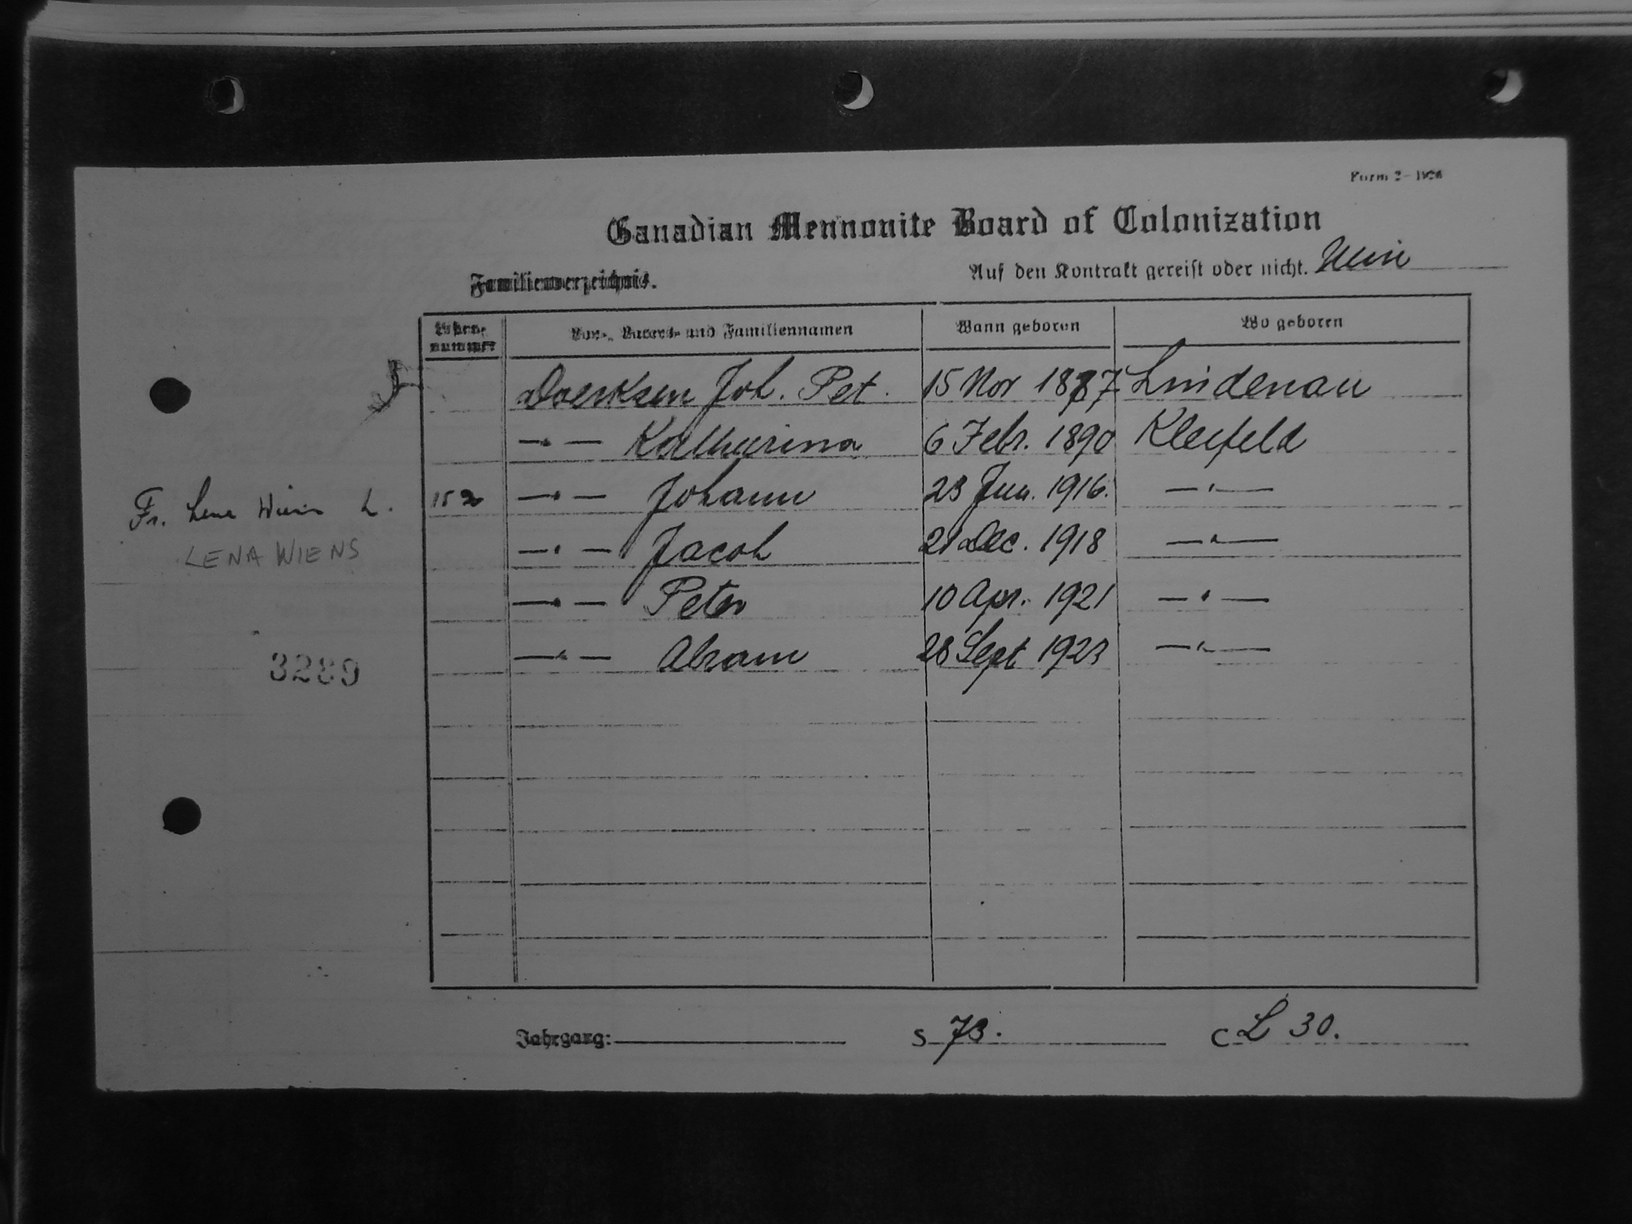 Form 2 - 1926
Canadian Mennonite Board of Colonization
Familienverzeichnis.
Auf den Kontrakt gereist oder nicht. Nein
nummer Vor-, Vaters- und Familiennamen Wann geboren Wo geboren
Doerksen Joh. Pet. 15 Nov 1887 Lindenau
—"— Katharina 6 Febr. 1890 Kleefeld
Fr. Lena Wiens L. 152 —"— Johann 23 Jun. 1916. —"—
LENA WIENS
—"— Jacob 21 Dec. 1918 —"—
—"— Peter 10 Apr. 1921 —"—
—"— Abram 28 Sept 1923 —"—
3289
Jahrgang: S 73. C L 30.